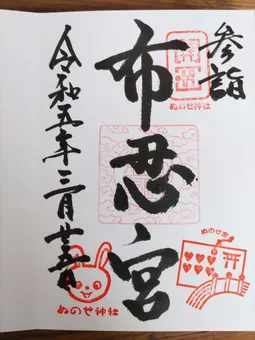 参詣
ぬのせ神社
布忍宮
令和五年三月廿五日
ぬのせ宮
ぬのせ神社